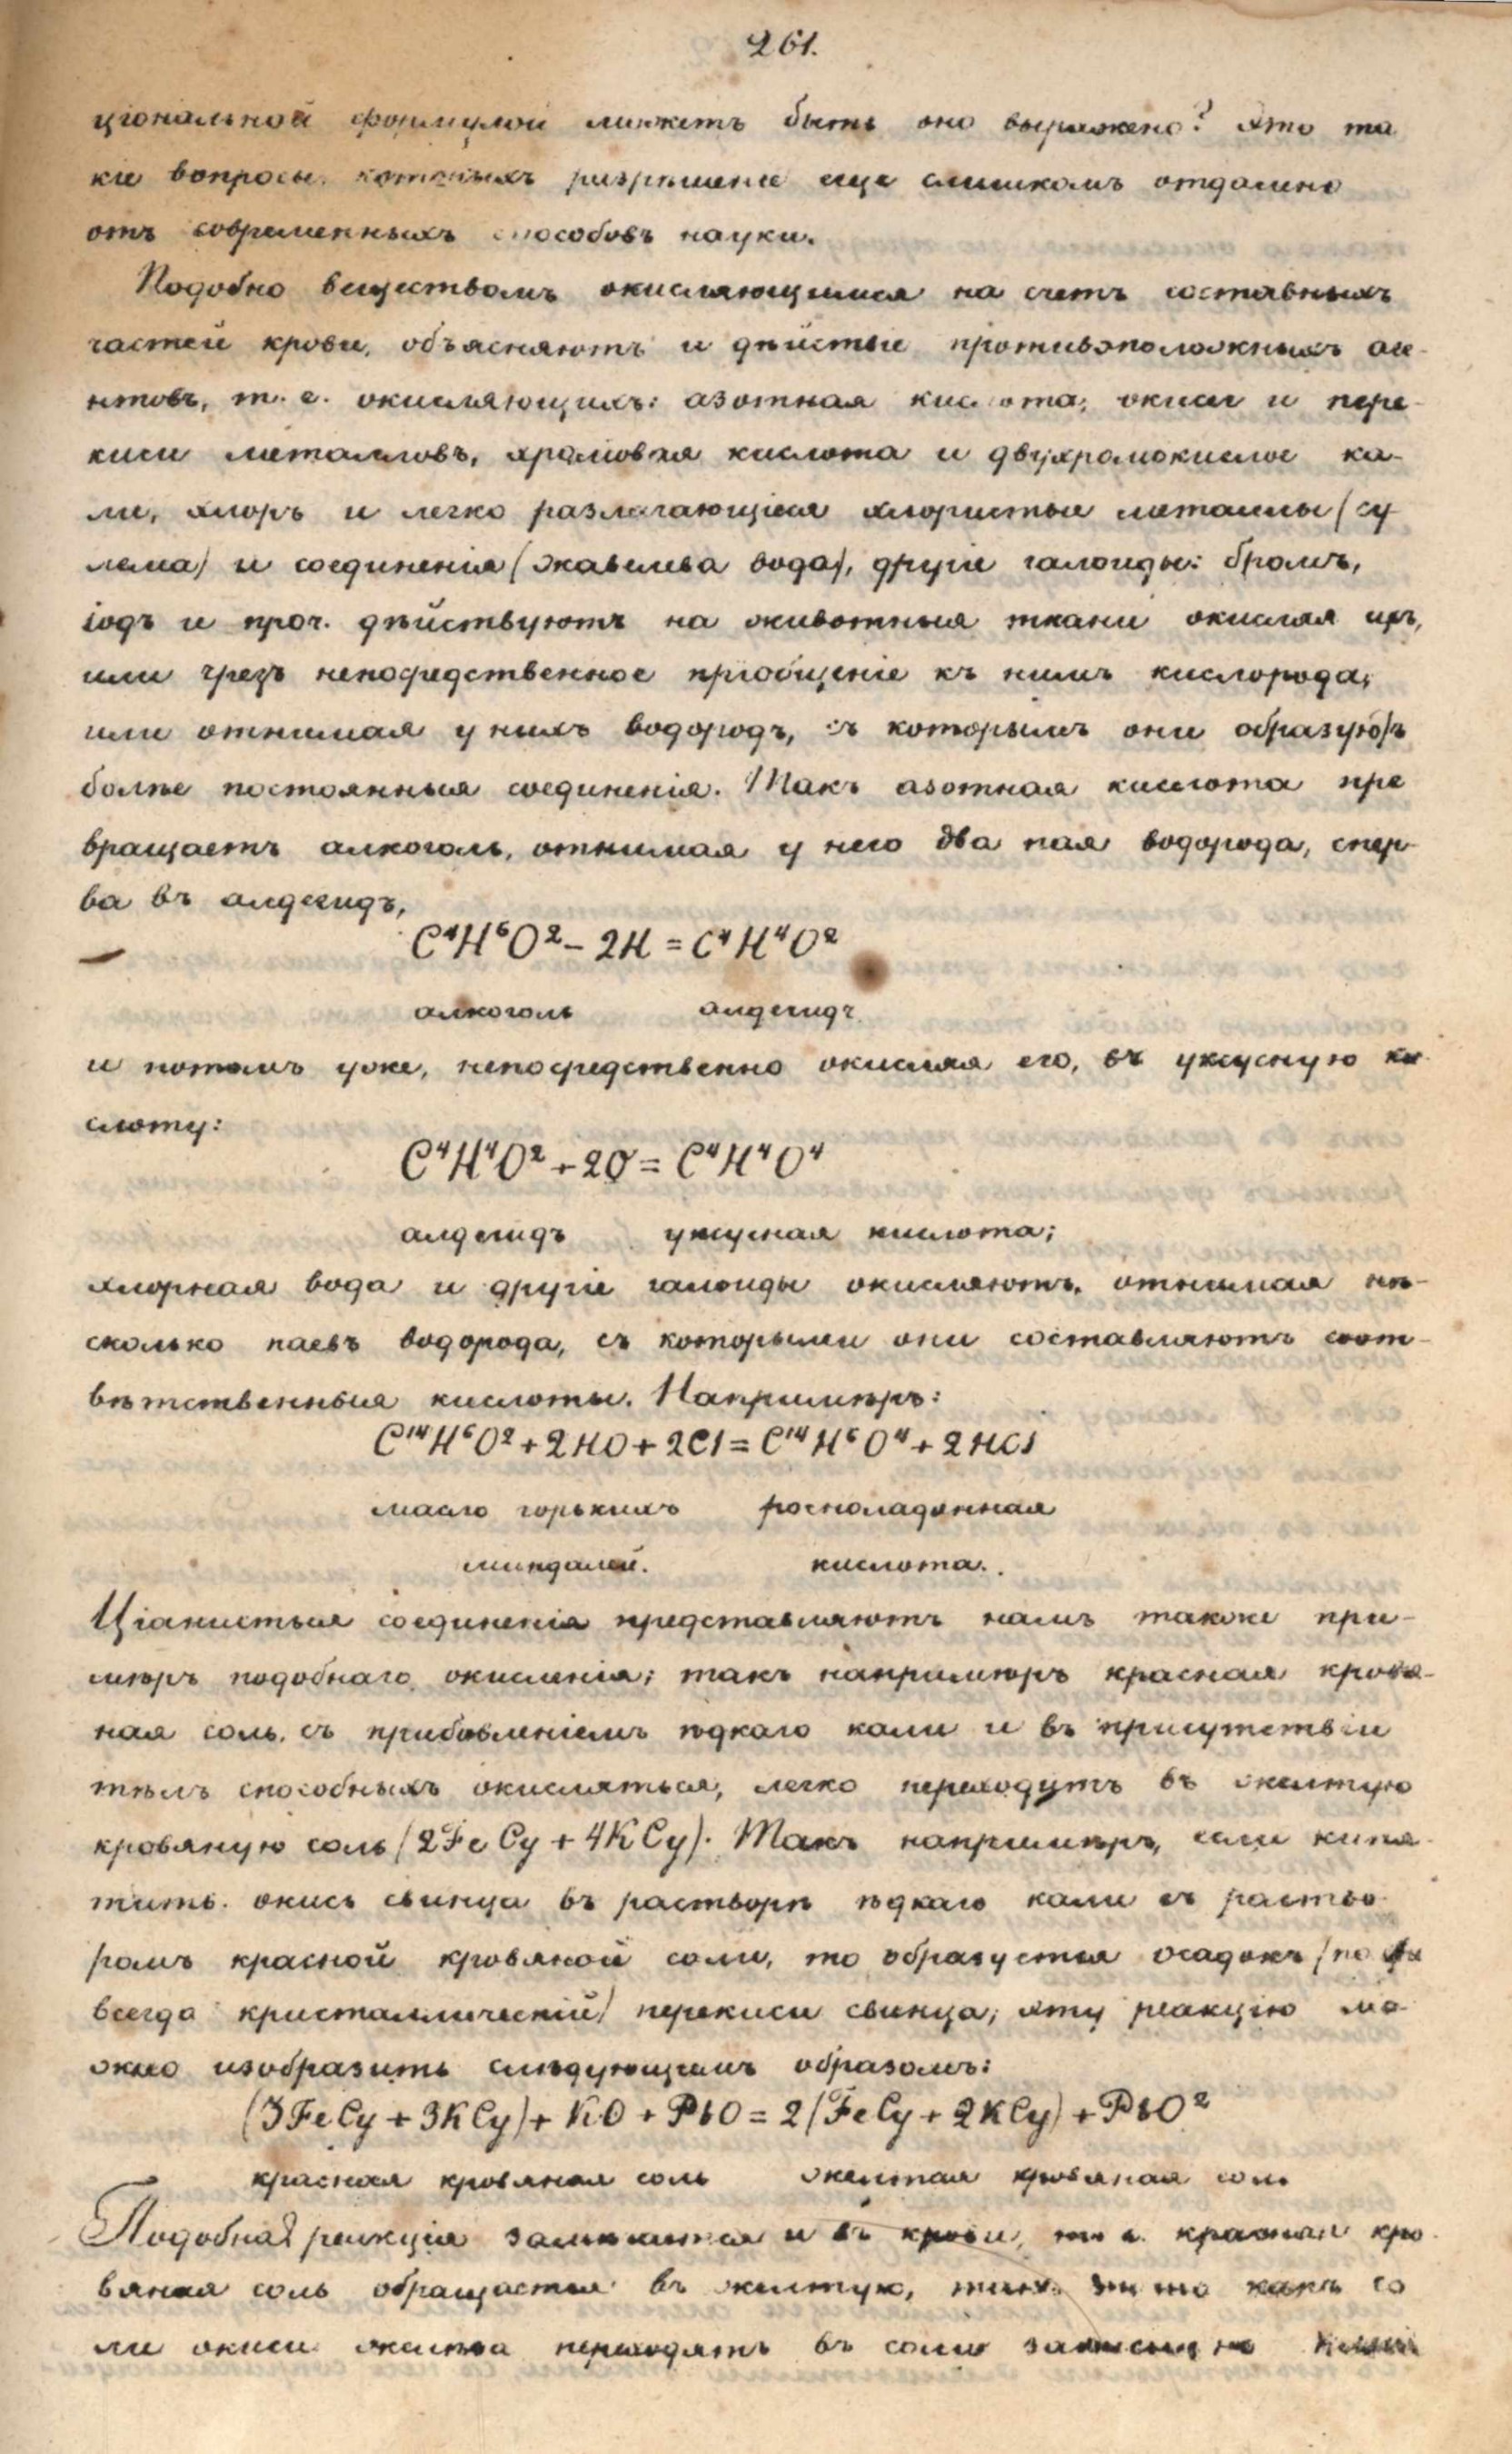 261.
ціональной формулой можетъ быть оно выражено? Это та
кіе вопросы, которыхъ разрѣшеніе еще слишкомъ отдалено
отъ современныхъ способовъ науки.
Подобно веществамъ окисляющимся на счетъ составныхъ
частей крови, объясняютъ и дѣйствіе противоположныхъ аге-
нтовъ, т. е. окисляющихъ: азотная кислота, окиси и пере-
киси металловъ, хромовая кислота и двухромокислое ка-
ли, хлоръ и легко разлагающіеся хлористые металлы (су
лема) и соединенія (жавелева вода), другіе галоиды: бромъ,
іодъ и проч. дѣйствуютъ на животныя ткани окисляя ихъ,
или чрезъ непосредственное пріобщеніе къ нимъ кислорода,
или отнимая у нихъ водородъ, съ которымъ они образуютъ
болѣе постоянныя соединенія. Такъ азотная кислота пре
вращаетъ алкоголь, отнимая у него два пая водорода, спер-
ва въ алдегидъ,
C⁴H⁶O² - 2H = C⁴H⁴O²
алкоголь алдегидъ
и потомъ уже, непосредственно окисляя его, въ уксусную ки-
слоту:
C⁴H⁴O² + 2O = C⁴H⁴O⁴
алдегидъ уксусная кислота;
хлорная вода и другіе галоиды окисляютъ, отнимая нѣ-
сколько паевъ водорода, съ которыми они составляютъ соот-
вѣтственныя кислоты. Напримѣръ:
C¹⁴H⁶O² + 2HO + 2Cl = C¹⁴H⁶O⁴ + 2HCl
масло горькихъ росноладанная
миндалей. кислота.
Ціанистыя соединенія представляютъ намъ также при-
мѣръ подобнаго окисленія; такъ напримѣръ красная кровя-
ная соль, съ прибавленіемъ ѣдкаго кали и въ присутствіи
тѣлъ способныхъ окисляться, легко переходутъ въ желтую
кровяную соль (2FeCy + 4KCy). Такъ напримѣръ, если кипя-
тить окись свинца въ растворѣ ѣдкаго кали съ раство
ромъ красной кровяной соли, то образуется осадокъ (по
всегда кристаллическій) перекиси свинца; эту реакцію мо-
жно изобразить слѣдующимъ образомъ:
(3FeCy + 3KCy) + KO + PbO = 2(FeCy + 2KCy) + PbO²
красная кровяная соль желтая кровяная соль
Подобная реакція замѣчается и въ крови, т. е. красная кро-
вяная соль обращается въ желтую, такъ какъ со
ли окиси желѣза переходятъ въ соли закиси